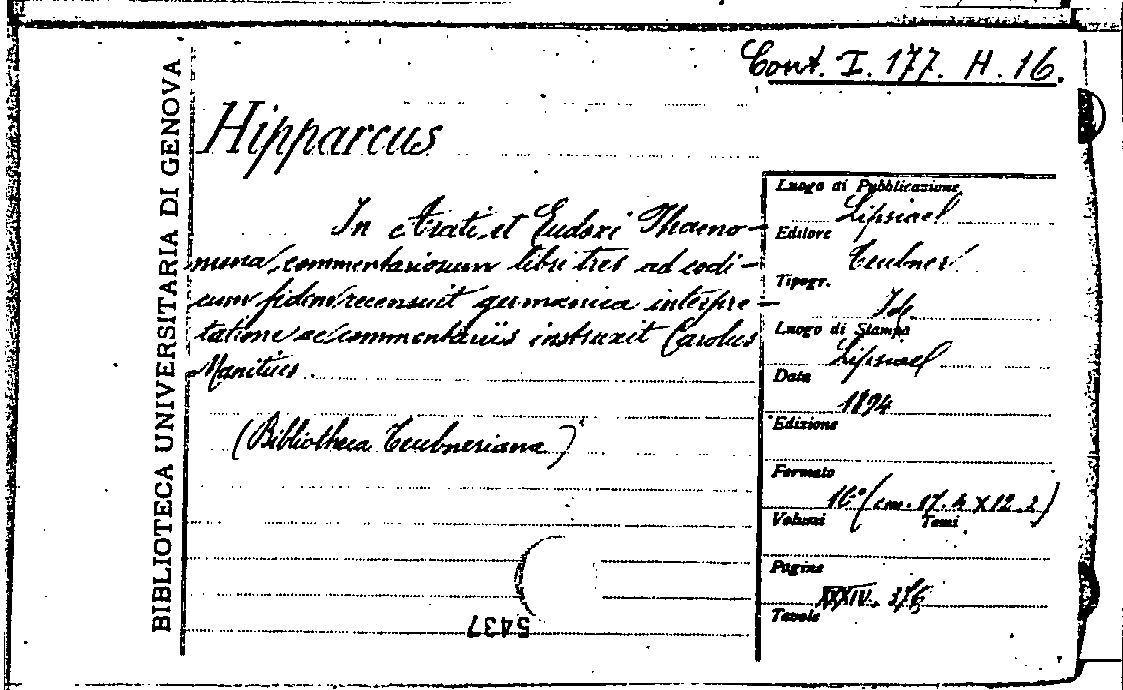 Cont. I. 177. H. 16.
BIBLIOTECA UNIVERSITARIA DI GENOVA
Hipparcus
In Arati et Eudoxi Phaeno-
mena, commentariorum libri tres ad codi-
cum fidem recensuit germanica interpre-
tatione et commentariis instruxit Carolus
Manitius.
(Bibliotheca Teubneriana)
Luogo di Pubblicazione
Lipsiae
Editore
Teubner
Tipogr.
Id.
Luogo di Stampa
Lipsiae
Data
1894
Edizione
Formato
16° (cm. 17.4 X 12.2)
Volumi Tomi
Pagine
XXXIV. 376
Tavole
5437